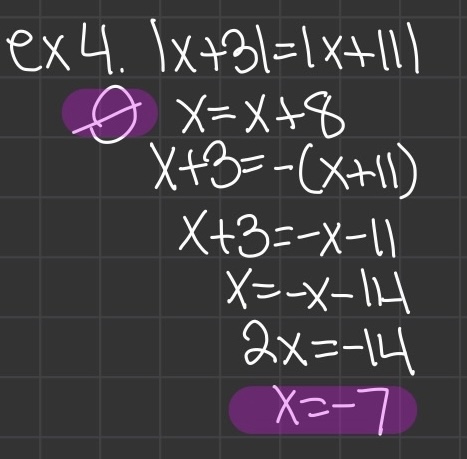 ex 4. |x+3|=|x+11|
∅ x=x+8
x+3=-(x+11)
x+3=-x-11
x=-x-14
2x=-14
x=-7